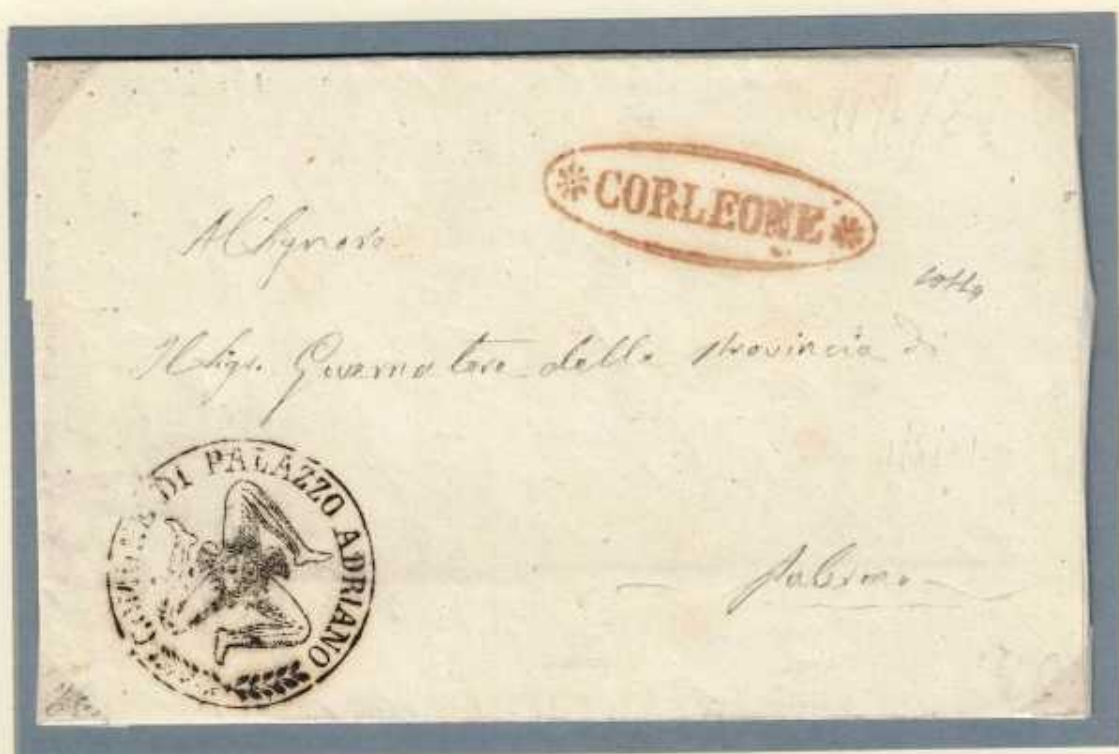 * CORLEONE *
Al Signore
Il Sigr. Governatore della Provincia di
Palermo
COMUNE DI PALAZZO ADRIANO